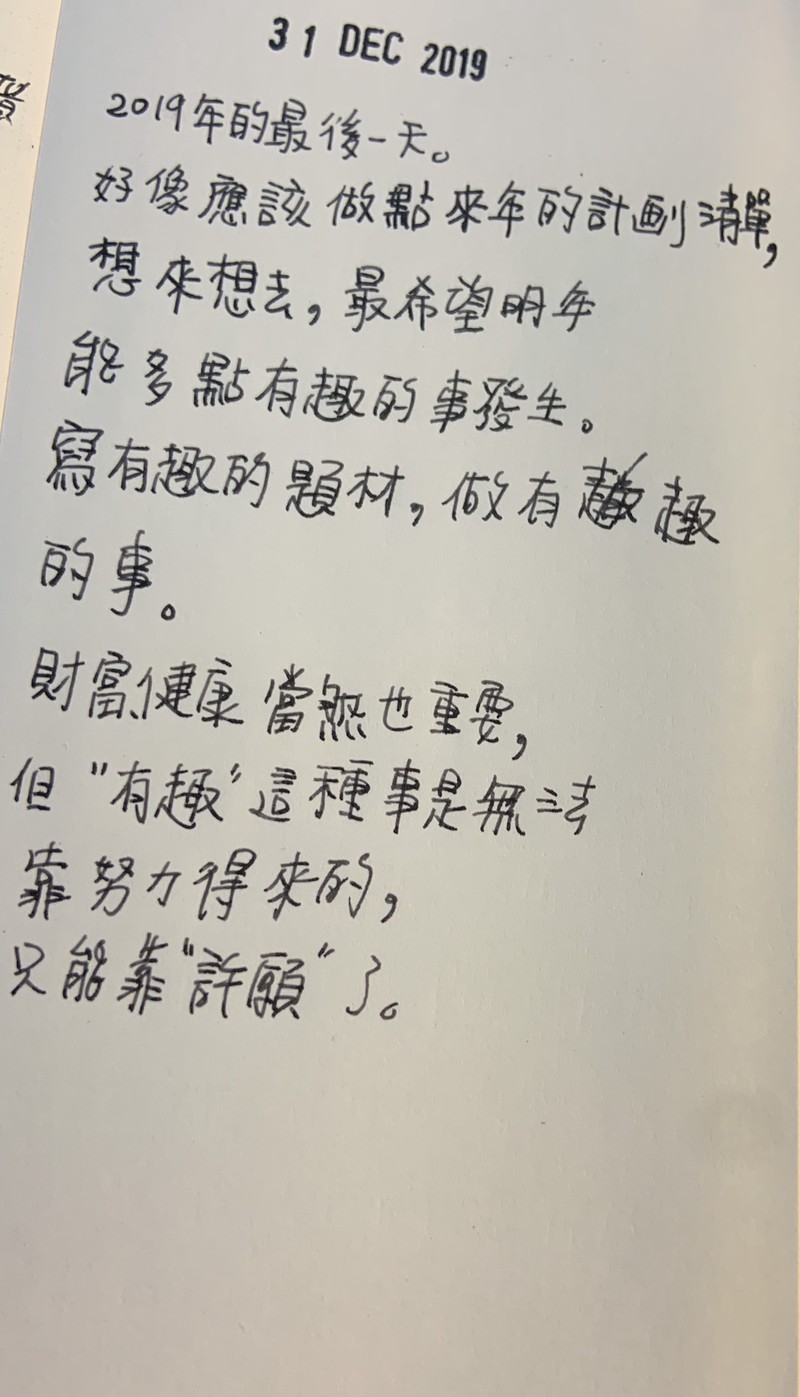 31 DEC 2019
2019年的最後一天。
好像應該做點來年的計劃清單,
想來想去,最希望明年
能多點有趣的事發生。
寫有趣的題材,做有趣
的事。
財富、健康當然也重要,
但"有趣"這種事是無法
靠努力得來的,
只能靠"許願"了。